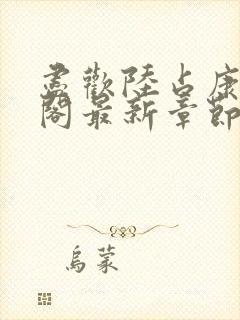 盡歡陸占康
閣最新章節
烏蒙